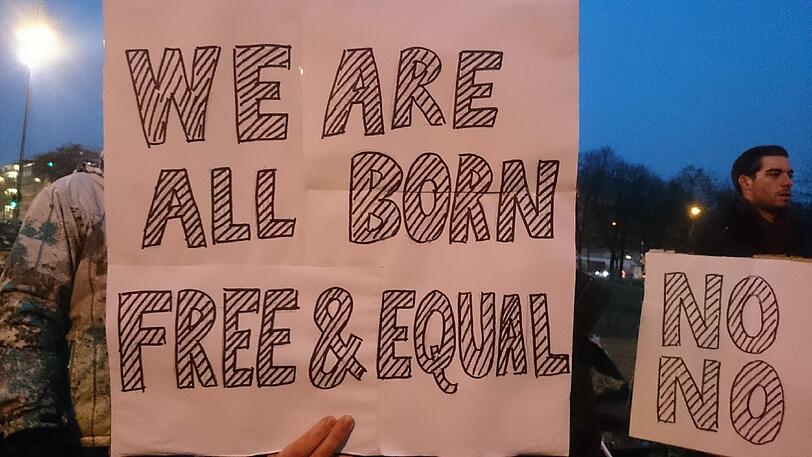 WE ARE
ALL BORN
FREE & EQUAL
NO
NO